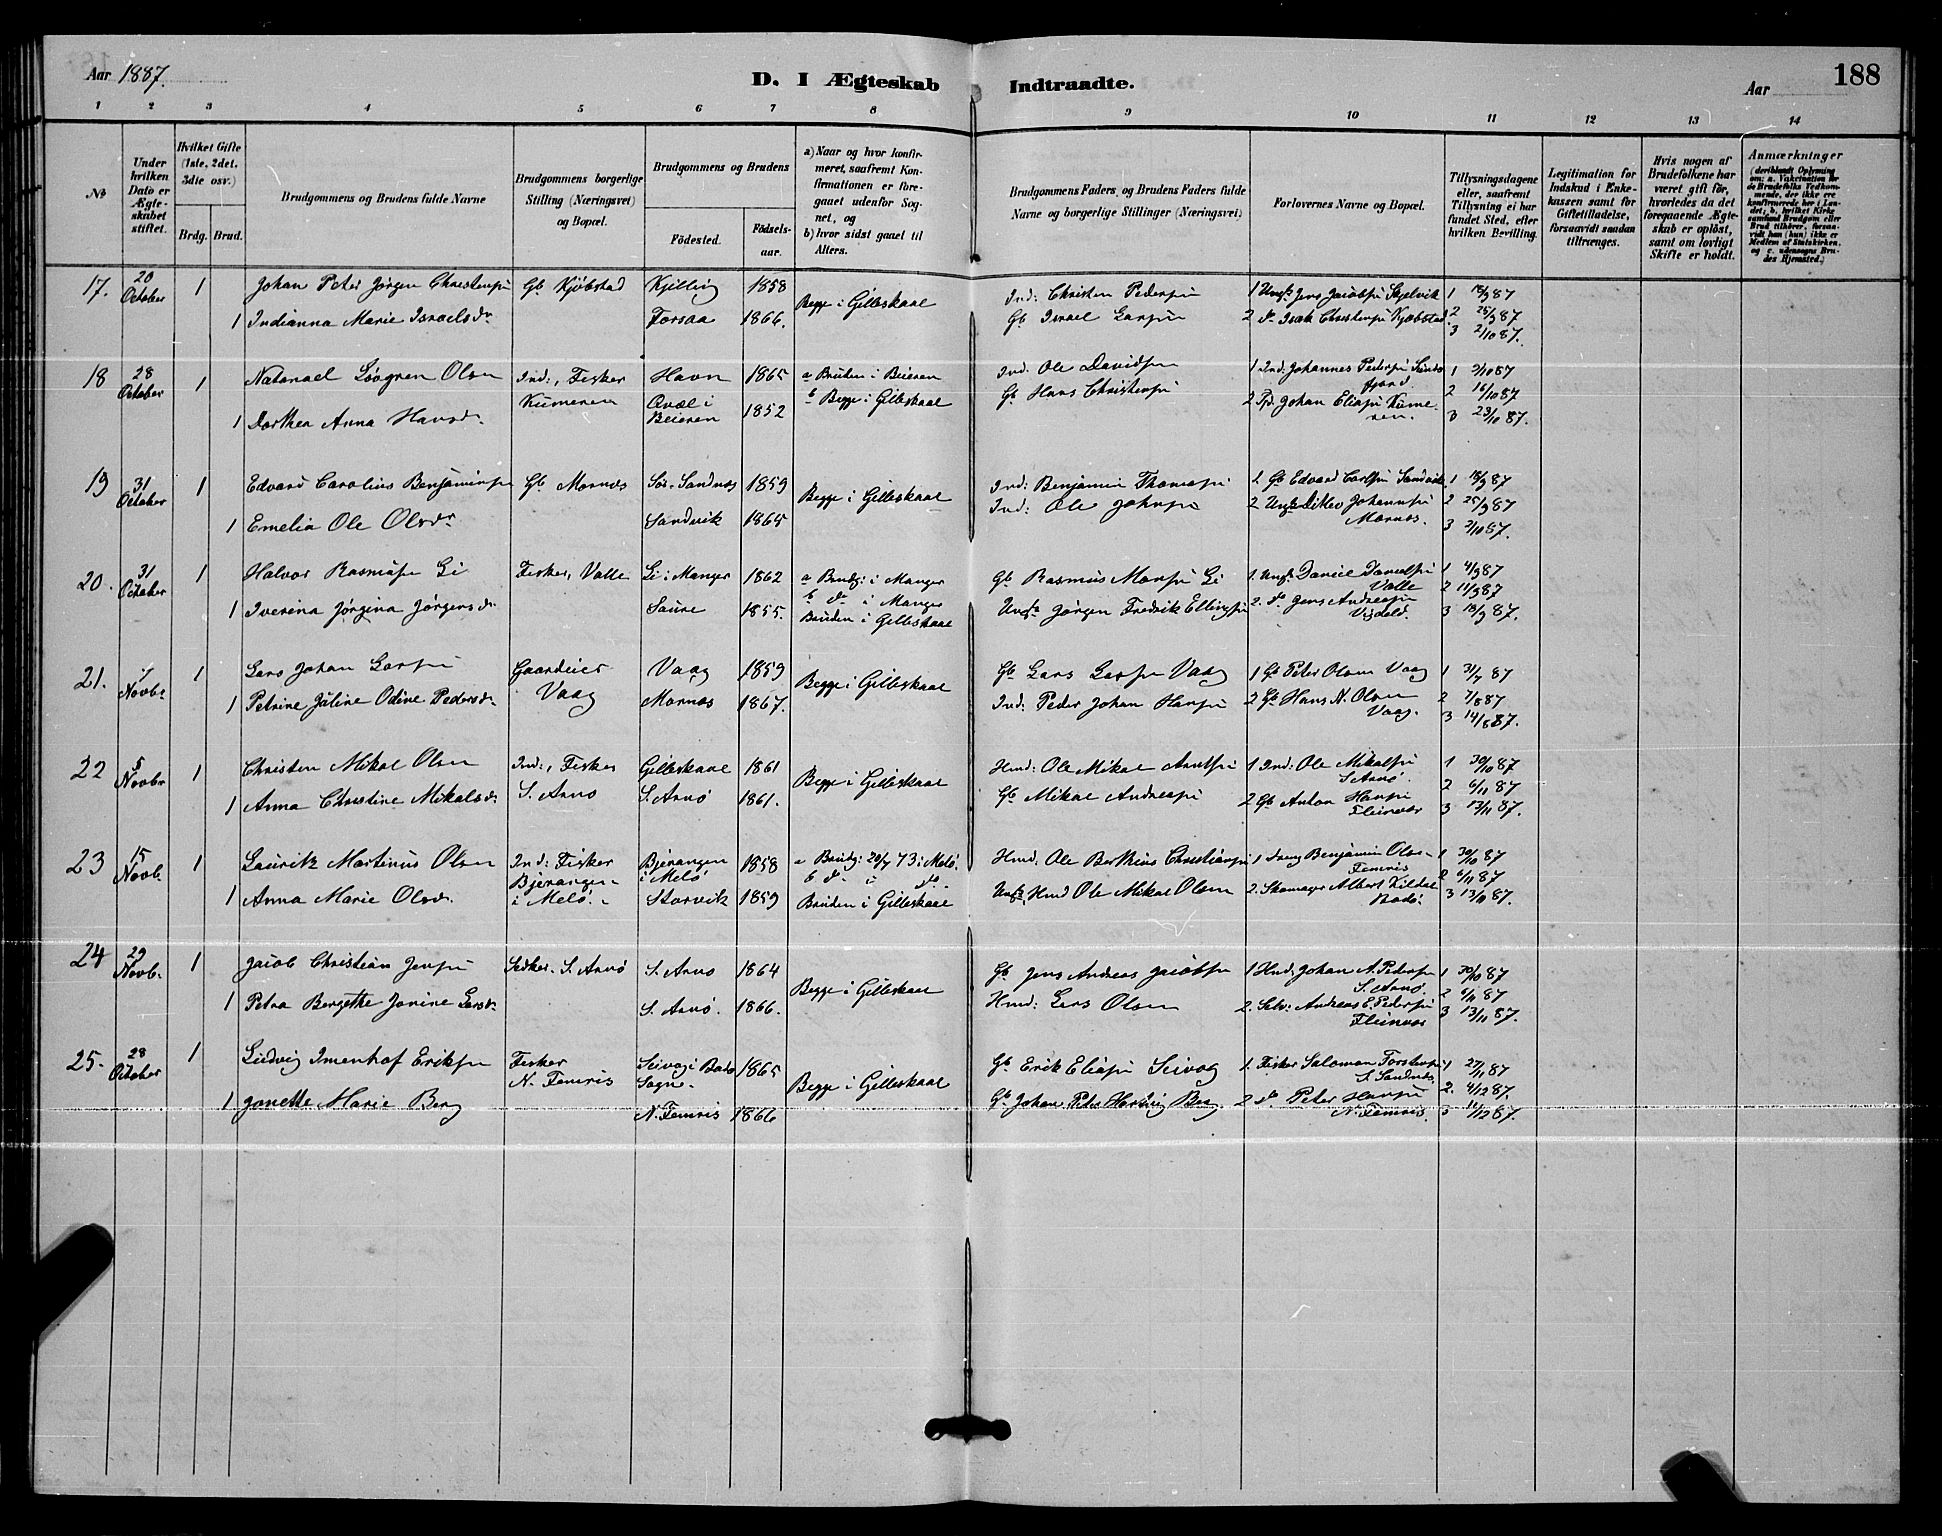 Aar 1887.
D. I Ægteskab Indtraadte.
Aar
188
1 2 3 4 5 6 7 8 9 10 11 12 13 14
No
Under hvilken Dato er Ægteskabet stiftet.
Hvilket Gifte (1ste, 2det, 3die osv.)
Brdg. Brud.
Brudgommens og Brudens fulde Navne
Brudgommens borgerlige Stilling (Næringsvei) og Bopæl.
Brudgommens og Brudens
Födested.
Födselsaar.
a) Naar og hvor konfirmeret, saafremt Konfirmationen er foregaaet udenfor Sognet, og
b) hvor sidst gaaet til Alters.
Brudgommens Faders, og Brudens Faders fulde Navne og borgerlige Stillinger (Næringsvei)
Forlovernes Navne og Bopæl.
Tillysningsdagene eller, saafremt Tillysning ei har fundet Sted, efter hvilken Bevilling.
Legitimation for Indskud i Enkekassen samt for Giftetilladelse, forsaavidt saadan tiltrænges.
Hvis nogen af Brudefolkene har været gift før, hvorledes da det foregaaende Ægteskab er oplöst, samt om lovligt Skifte er holdt.
Anmærkninger
17. 20 October 1 Johan Peter Jørgen Christensen Gb. Kjøbstad Kjelling 1858 Begge i Gilleskaal Ind: Christen Pedersen 1 Ungk. Jens Jacobsen Skjelvik 1 18/9 87
1 Indianna Marie Israelsdr Forsaa 1866. Gb Israel Larsen 2 do Isak Christensen Kjøbstad 2 25/9 87
3 2/10 87.
18 28 October 1 Natanael Løvgren Olsen Ind:, Fisker Havn 1865 a Bruden i Beieren Ind: Ole Davidsen 1 Ind: Johannes Pedersen Sundsfjord 1 9/10 87
Kumeren i Beieren b Begge i Gilleskaal Gb Hans Christensen 2 16/10 87
1 Dorthea Anna Hansdr. 1852 2 Pd. Johan Eliasen Kumeren. 3 23/10 87.
19 31 October 1 Edvard Carolius Benjaminsen Gb Mornes Sør-Sandnes 1859 Begge i Gilleskaal Ind: Benjamin Thomasen 1 Gb Edvard Carlsen Sandvik 1 18/9 87
1 Emelia Ole Olsdr Sandvik 1865 Ind: Ole Johnsen 2 Ungk. Ditlev Johannsen Mornes. 2 25/9 87
3 2/10 87.
20. 31 October 1 Halvor Rasmusen Li Fisker, Valle Li i Manger 1862 a Brudg: i Manger Gb Rasmus Monsen Li 1. Ungk. Daniel Danielsen Valle 1 4/9 87
b do i Manger 2 11/9 87
1 Iverina Jørgina Jørgensdr. Saure 1855. Bruden i Gilleskaal Ungk. Jørgen Fredrik Ellingsen 2. do Jens Andreasen Vigdeld. 3 18/9 87.
21. Novbr 1 Lars Johan Larsen Gaardeier Vaag Vaag 1859 Begge i Gilleskaal Gb Lars Larsen Vaag 1 Gb Peter Olsen Vaag 1 31/7 87
1 Petrine Jâline Odine Pedersdr. Mornes 1867. Ind: Peder Johan Hansen 2 Gb Hans N. Olsen Vaag. 2 7/8 87
3 14/8 87.
22 5 Novbr 1 Christen Mikal Olsen Ind:, Fisker S. Arnö Gilleskaal 1861 Begge i Gilleskaal Hmd: Ole Mikal Arntsen 1 Ind: Ole Mikalsen S. Arnö 1 30/10 87
1 Anna Christine Mikalsdr. S. Arnö 1861. Gb Mikal Andreasen 2 Gb Anton Hansen Fleinvær 2 6/11 87
3 13/11 87.
23 15 Novb. 1 Lauritz Martinus Olsen Ind: Fisker Bjerangen i Melö. Bjerangen i Melö 1858 a Brudg: 20/7 73 i Melö. Hmd: Ole Berthius Christiansen 1 Dreng Benjamin Olsen Femris 1 30/10 87
b do. i do. 2 6/11 87
1 Anna Marie Olsdr. Storvik 1859 Bruden i Gilleskaal Ungk. Hmd Ole Mikal Olsen 2. Skomager Albert Kildal Bodö. 3 13/10 87.
24 29 Novb. 1 Jacob Christian Jensen Fisker. S. Arnö S. Arnö 1864 Begge i Gilleskaal Gb Jens Andreas Jacobsen 1 Hmd. Johan A. Pedersen S. Arnö. 1 30/10 87
1 Petra Bergethe Janine Larsdr. S. Arnö. 1866. Hmd: Lars Olsen 2. Selv: Andreas E. Pedersen Fleinvær 2 6/11 87
3 13/11 87.
25. 28 October 1 Ludvig Imenhof Eriksen Fisker N. Femris Seivaag i Bodö Sogn. 1865 Begge i Gilleskaal Gb Erik Eliasen Seivog 1. Fisker Salomon Torstensen S. Sandnes. 1 27/11 87
1 Jonette Marie Berg N. Femris 1866 Gb Johan Peter Hartvig Berg. 2 do Peter Hansen N. Femris. 2. 4/12 87.
3 11/12 87.